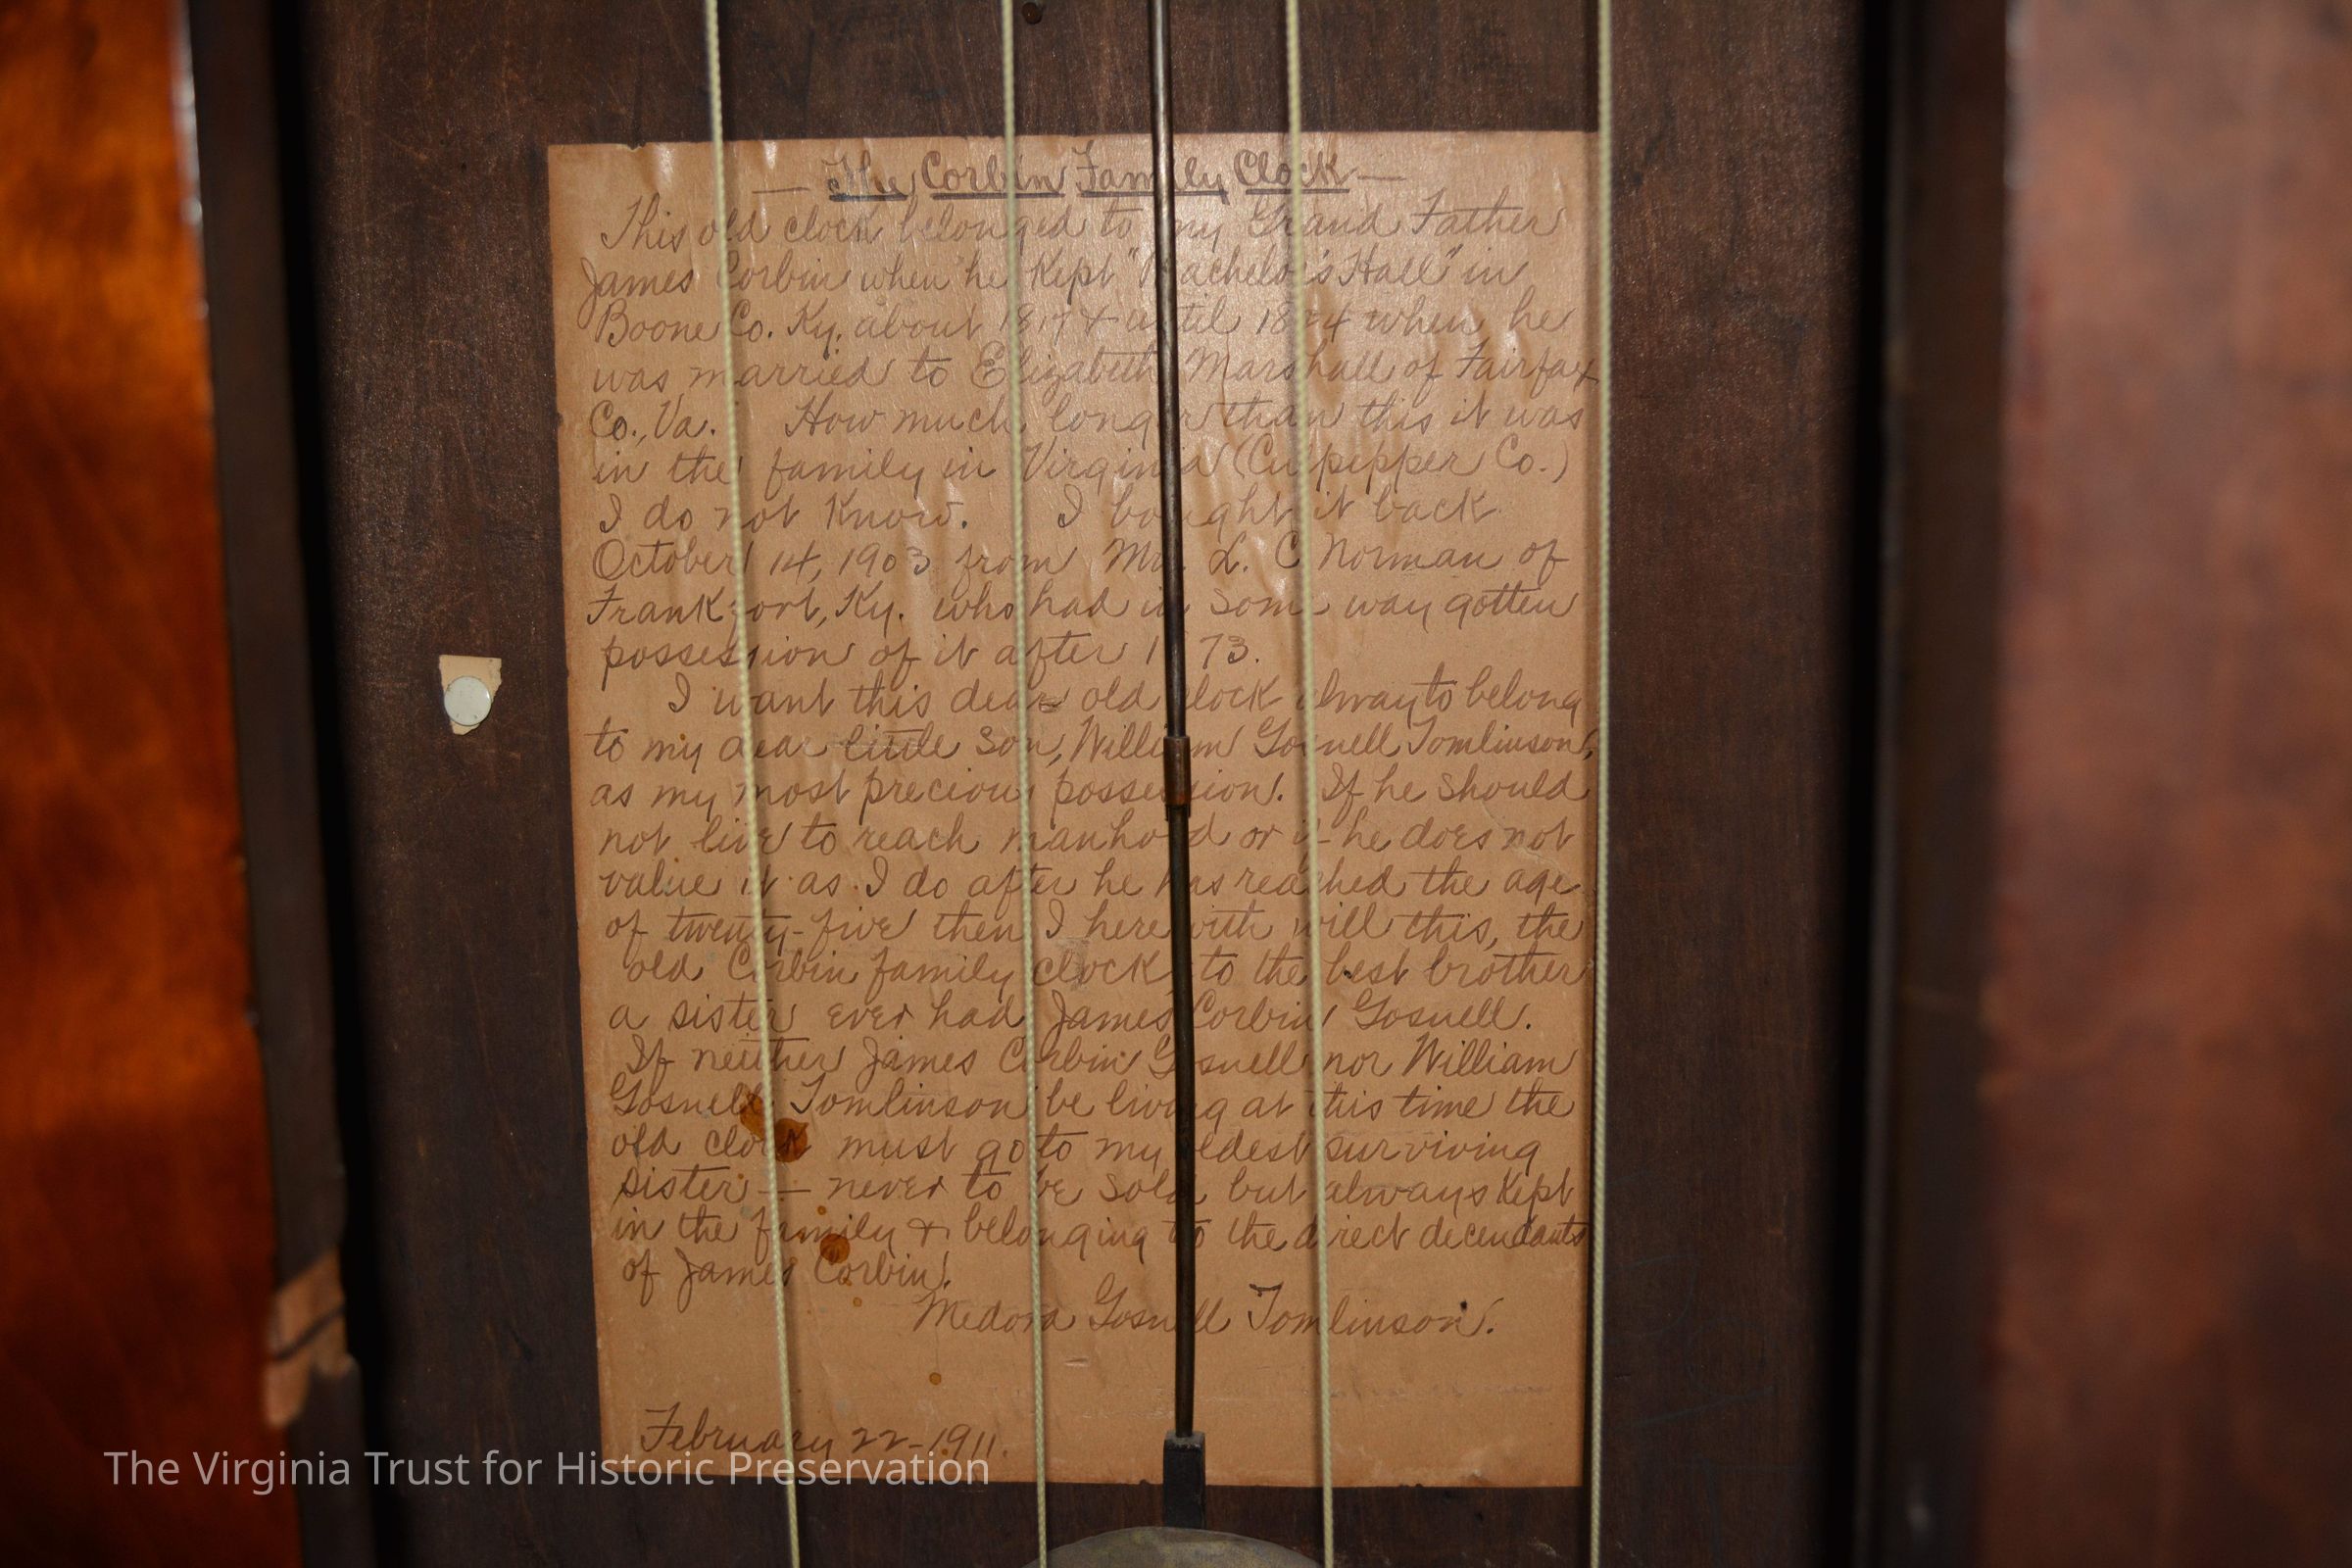 — The Corbin Family Clock —
This old clock belonged to my Grand Father
James Corbin when he kept "Bachelor's Hall" in
Boone Co. Ky. about 1817 & until 1824 when he
was married to Elizabeth Marshall of Fairfax
Co., Va. How much longer than this it was
in the family in Virginia (Culpepper Co.)
I do not know. I bought it back
October 14, 1903 from Mr. L. C Norman of
Frankfort, Ky. who had in some way gotten
possession of it after 1873.
I want this dear old clock alway to belong
to my dear little son, William Gosnell Tomlinson,
as my most precious possession. If he should
not live to reach manhood or if he does not
value it as I do after he has reached the age
of twenty-five then I here with will this, the
old Corbin family clock, to the best brother
a sister ever had James Corbin Gosnell.
If neither James Corbin Gosnell nor William
Gosnell Tomlinson be living at this time the
old clock must go to my eldest surviving
sister — never to be sold but always kept
in the family & belonging to the direct decendants
of James Corbin.
Medora Gosnell Tomlinson.
February 22-1911.
The Virginia Trust for Historic Preservation